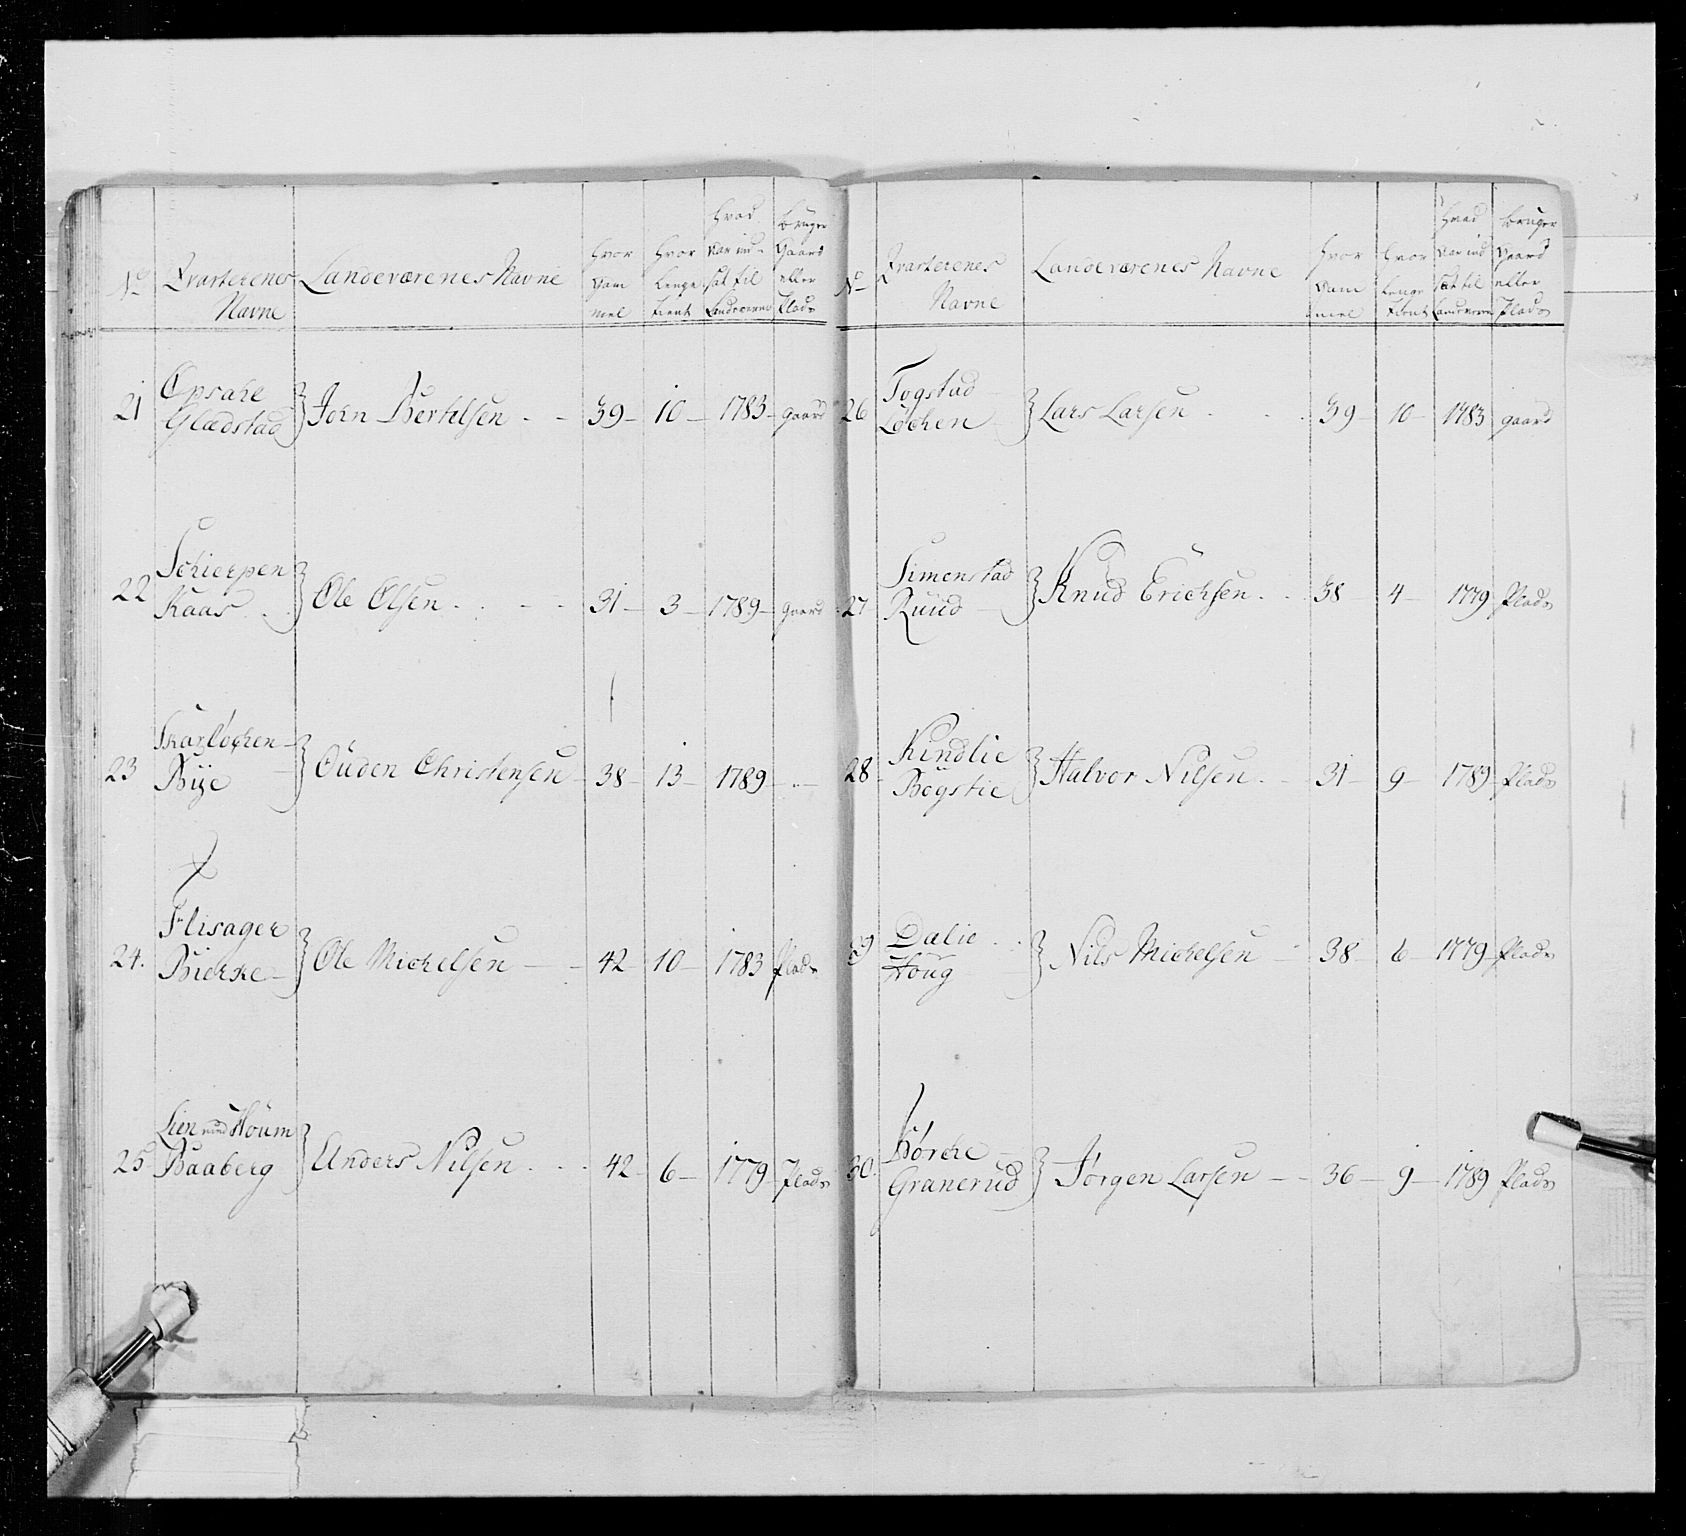 No Qvarterenes Navne Landeværenes Navne hvor Gammel hvor lenge tient hvad Aar indsat til Landeværne bruger Gaard eller Plads
21 Opsahl Glædstad } Joen Bertelsen - - 39 - 10 - 1783 - gaard
22 Schierpen Kaas . . } Ole Olsen . . - - 31 - 3 - 1789 - gaard
23 Skarløchen - Bye - } Ouden Christensen - 38 - 13 - 1789 - " -
24. Flisager Bierke - } Ole Michelsen - - 42 - 10 - 1783 Plads
25 Lien Houm Baaberg } Anders Nilsen . . . 42 - 6 - 1779 - Plads
No Qvarterenes Navne Landeværenes Navne hvor Gammel hvor lenge tient hvad Aar indsat til Landeværne bruger Gaard eller Plads
26 Togstad Løchen } Lars Larsen . . . 39 - 10 - 1783 gaard
27 Simenstad Ruud - } Knud Erichsen . . 38 - 4 - 1779 Plads
28 - Kindlie Bøgstie } Halvor Nilsen . - 31 - 9 - 1789 - Plads
29 Dalie . . Houg } Nils Michelsen - 38 - 6 - 1779 - Plads
30. Hørche - Granerud } Jørgen Larsen - - 36 - 9 - 1789 Plads